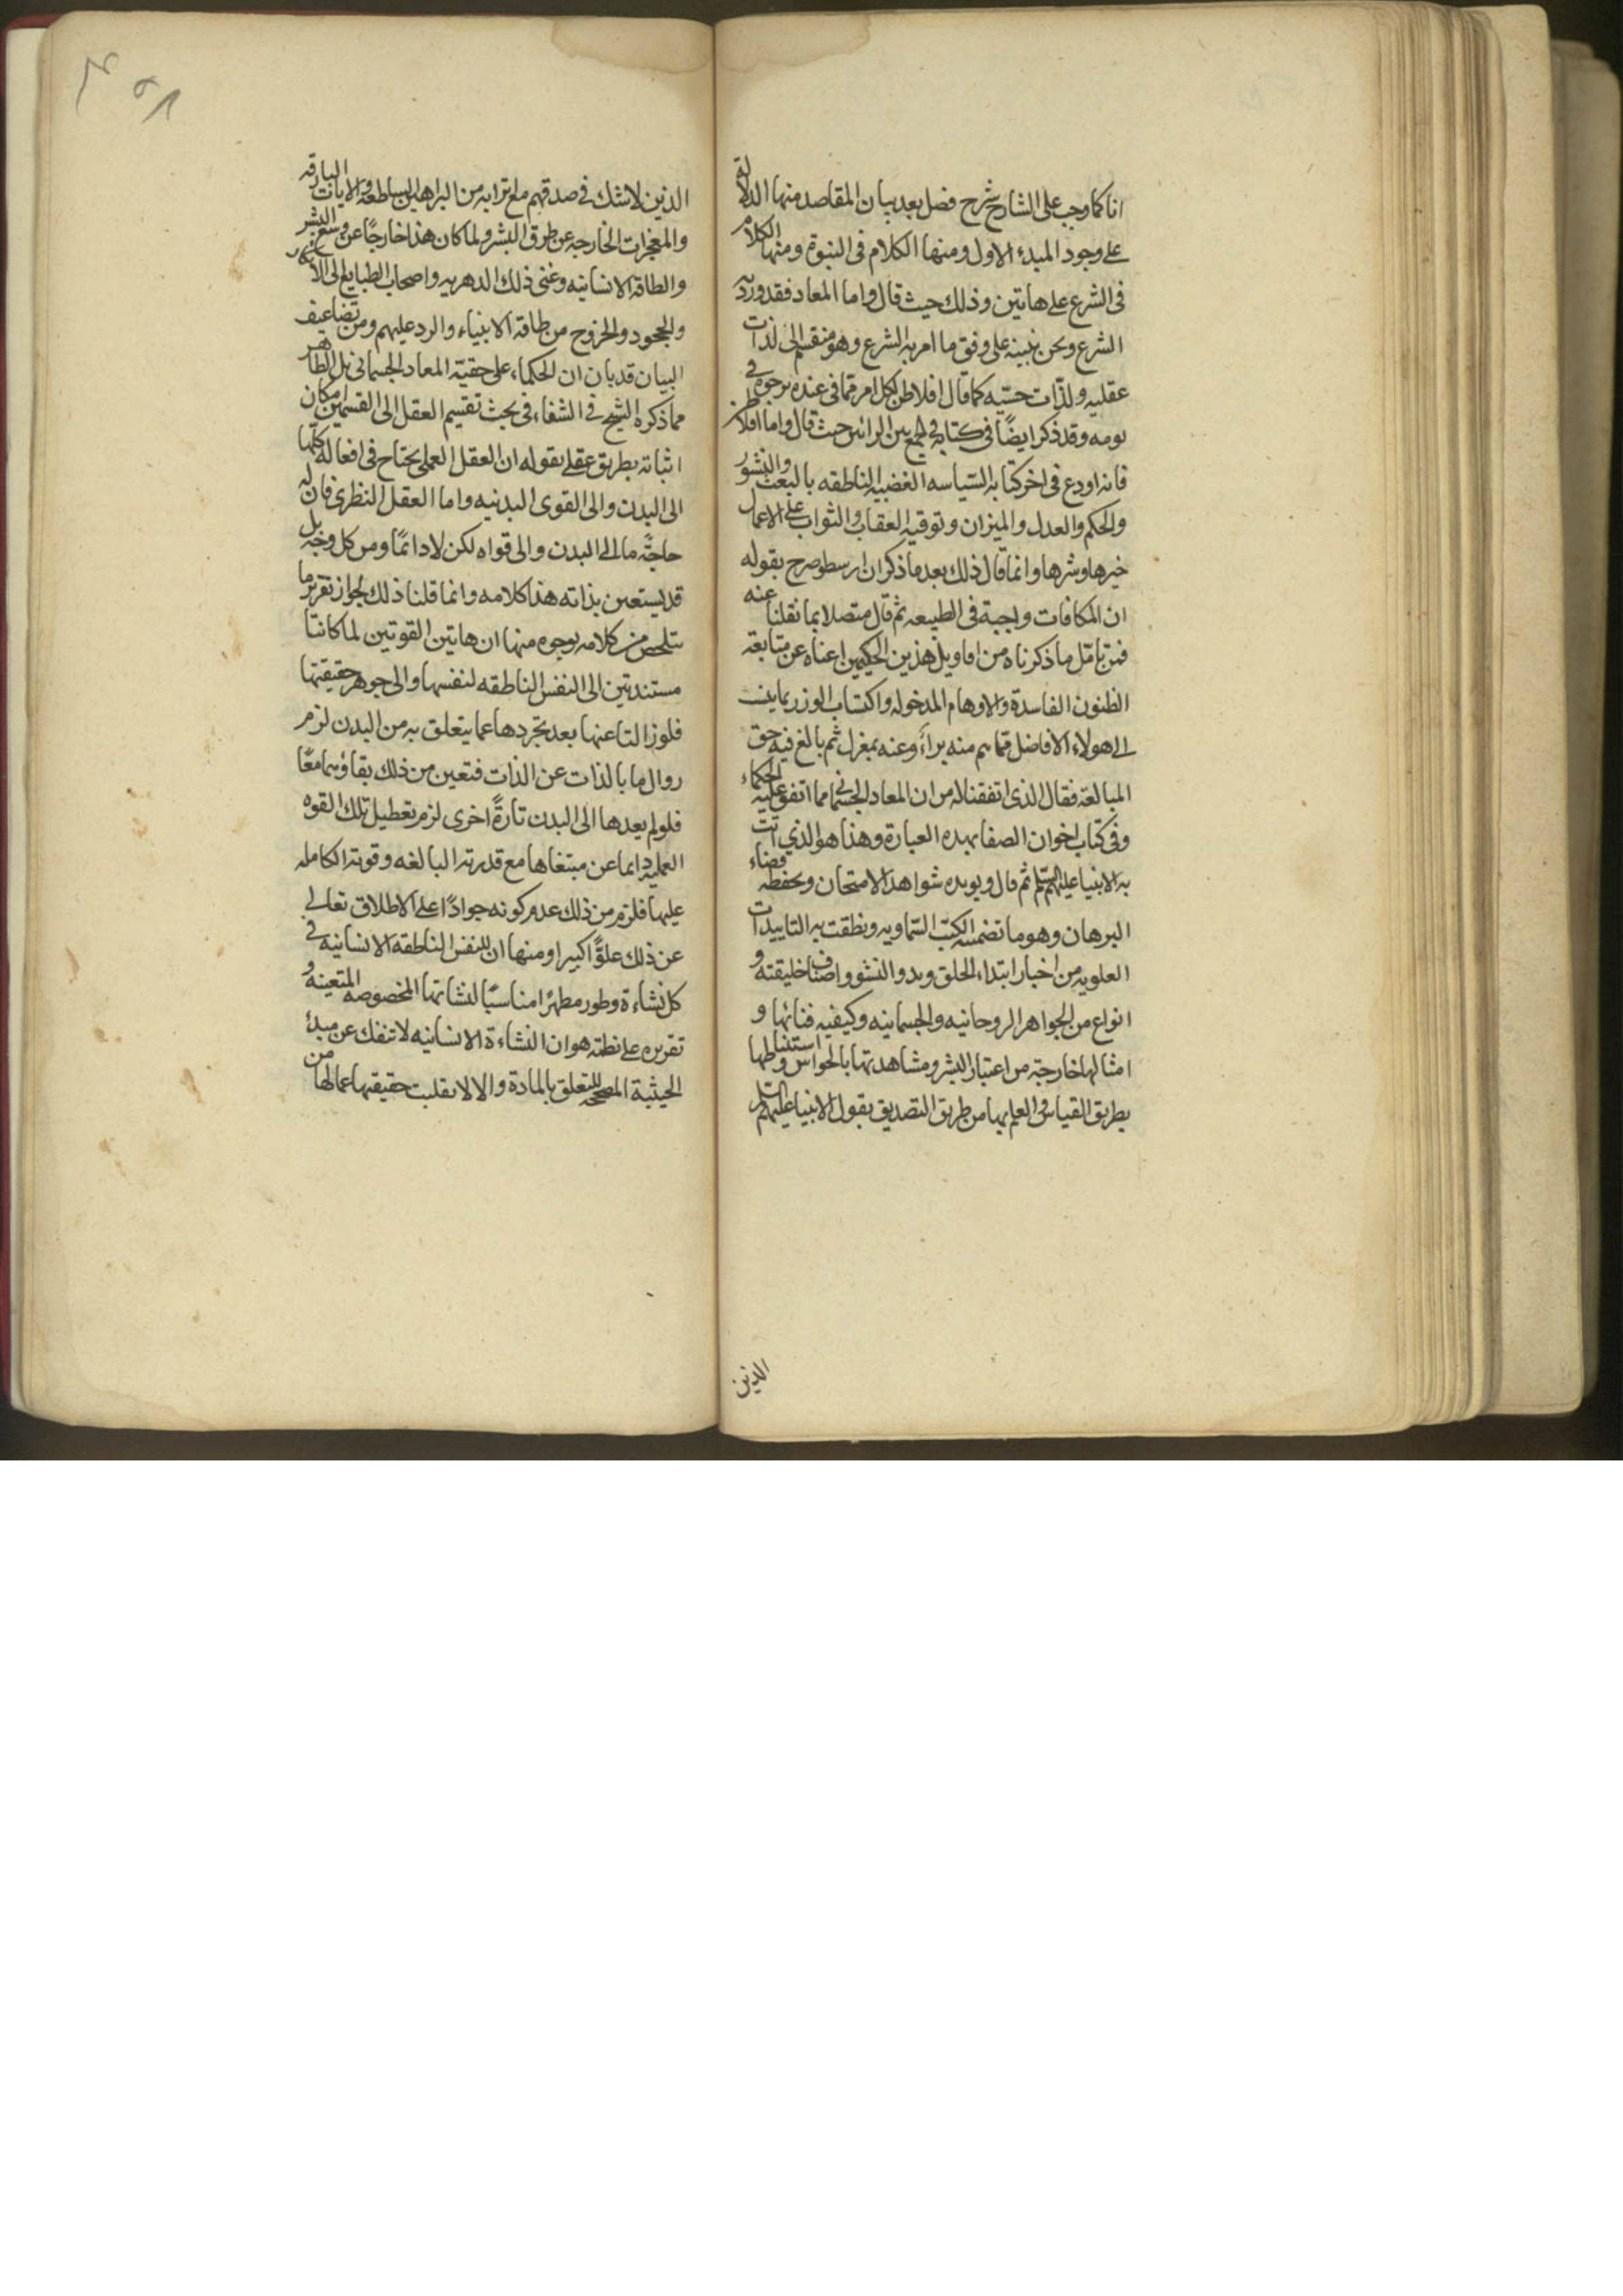 انا كما وجب على الشارح شرح فصل بعد بيان المقاصد منها الدلالة
على وجود المبدء الاول ومنها الكلام فى النبوة ومنها الكلام
فى الشرع على هاتين وذلك حيث قال واما المعاد فقد ورد به
الشرع ونحن نبينه على وفق ما امر به الشرع وهو منقسم الى لذات
عقليه ولذات حسيه كما قال افلاطن لكل امر ما فى عنده يرجوه فى
يومه وقد ذكر ايضًا فى كتابه فى الجمع بين الرائين حيث قال واما افلاطن
فانه اودع فى اخر كتابه السياسه الغضبيه الناطقه بالبعث والنشور
والحكم والعدل والميزان وتوفيه العقاب والثواب على الاعمال
خيرها وشرها وانما قال ذلك بعد ما ذكر ان ارسطو صرح بقوله
ان المكافات واجبة فى الطبيعه ثم قال متصلا بما نقلنا عنه
فمن تامّل ما ذكرناه من اقاويل هذين الحكيمين اغناه عن متابعة
الظنون الفاسدة والاوهام المدخوله واكتساب الوزر بما ينسب
الى هولاء الافاضل مما هم منه براء وعنه بمعزل ثم بالغ فيه حق
المبالغة فقال الذى اتفقنا له من ان المعاد الجسمانى مما اتفق عليه الحكماء
وفى كتاب اخوان الصفا بهده العبارة وهذا هو الذي اتت
به الانبيا عليهم السلم ثم قال ويويده شواهد الامتحان ويحفظه قضاء
البرهان وهو ما تضمنه الكتب السماويه ونطقت به التاييدات
العلويه من اخبار ابتداء الخلق وبدو النشو واصناف خليقته و
انواع من الجواهر الروحانيه والجسمانيه وكيفيه فنائها و
امثالها خارجة من اعتبار البشر ومشاهدتها بالحواس واستنباطها
بطريق القياس فى العلم بها من طريق التصديق بقول الانبيا عليهم السلم
الذين
الذين لاشك فى صدقهم مع ترابه من البراهين الساطعة والايات البارقه
والمعجزات الخارجه عن طرق البشر ولما كان هذا خارجًا عن وسع البشر
والطاقة الانسانيه وعنى ذلك الدهريه واصحاب الطبايع الى الانكار
والجحود والخروج من طاقة الانبياء والرد عليهم ومن تضاعيف
البيان قد بان ان الحكماء على حقيّة المعاد الجسمانى بل الظاهر
مما ذكره الشيخ فى الشفاء فى بحث تقسيم العقل الى القسمين امكان
اثباته بطريق عقلى بقوله ان العقل العملى يحتاج فى افعاله كلّها
الى البدن والى القوى البدنيه واما العقل النظرى فان له
حاجةً ما الى البدن والى قواه لكن لا دائمًا ومن كل وجه بل
قد يستعين بذاته هذا كلامه وانما قلنا ذلك لجواز تقرير ما
يتلخص من كلامه بوجوه منها ان هاتين القوتين لما كانتا
مستندتين الى النفس الناطقه لنفسها والى جوهر حقيقتها
فلو زالتا عنها بعد تجردها عما يتعلق به من البدن لزم
زوال ما بالذات عن الذات فتعين من ذلك بقاؤهما معًا
فلو لم يعدها الى البدن تارةً اخرى لزم تعطيل تلك القوه
العمليه دايما عن مبتغاها مع قدرته البالغه وقوته الكامله
عليها فلزم من ذلك عدم كونه جوادًا على الاطلاق تعالى
عن ذلك علوًّا كبيرا ومنها ان للنفس الناطقه الانسانيه فى
كل نشاءة وطور مظهرًا مناسبًا لنشاتها المخصوصه المتعينه و
تقريره على نظمه هو ان النشاءة الانسانيه لا تنفك عن مبدئ
الحيثية المصححه للتعلق بالمادة والا لانقلبت حقيقتها عما لها من